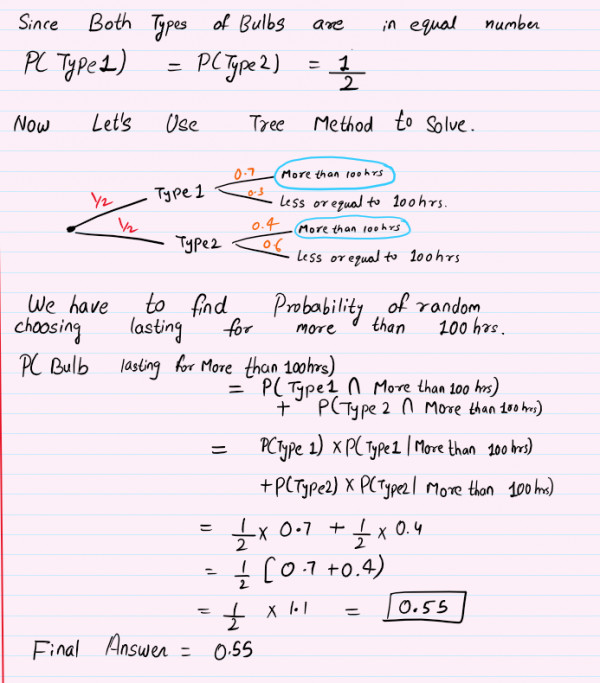 Since Both Types of Bulbs are in equal number
P( Type 1) = P(Type 2) = 1/2
Now Let's Use Tree Method to Solve.
0.7 More than 100hrs
1/2 Type 1 0.3 Less or equal to 100hrs.
1/2 Type 2 0.4 More than 100hrs
0.6 Less or equal to 100hrs
We have to find Probability of random
choosing lasting for more than 100 hrs.
P( Bulb lasting for More than 100hrs)
= P( Type 1 ∩ More than 100 hrs)
+ P(Type 2 ∩ More than 100 hrs)
= P(Type 1) x P( Type 1 | More than 100 hrs)
+ P(Type2) x P(Type2 | More than 100 hrs)
= 1/2 x 0.7 + 1/2 x 0.4
= 1/2 [0.7 + 0.4)
= 1/2 x 1.1 = 0.55
Final Answer = 0.55